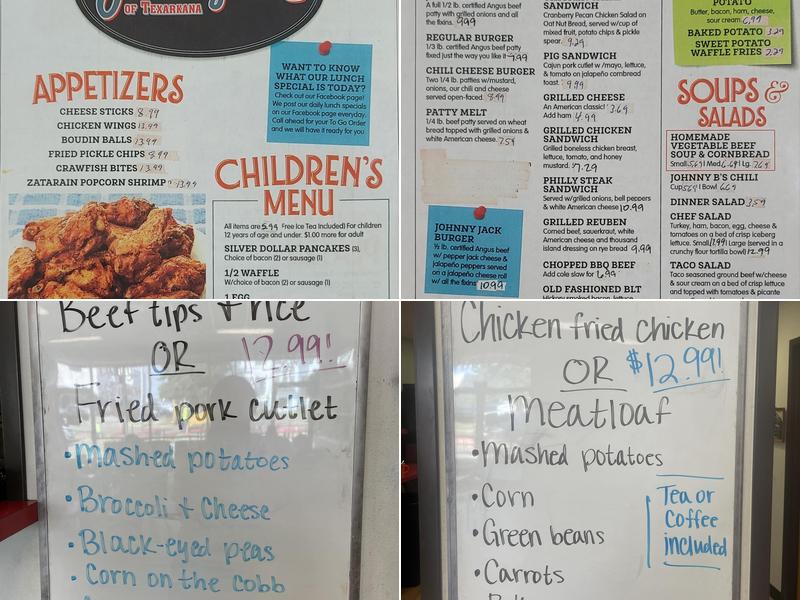 OF TEXARKANA
APPETIZERS
CHEESE STICKS 8.99
CHICKEN WINGS 13.99
BOUDIN BALLS 13.99
FRIED PICKLE CHIPS 8.99
CRAWFISH BITES 13.99
ZATARAIN POPCORN SHRIMP 13.99
WANT TO KNOW
WHAT OUR LUNCH
SPECIAL IS TODAY?
Check out our Facebook page!
We post our daily lunch specials
on our Facebook page everyday.
Call ahead for your To Go Order
and we will have it ready for you
CHILDREN'S
MENU
All items are 5.99 Free Ice Tea Included! For children
12 years of age and under. $1.00 more for adult
SILVER DOLLAR PANCAKES (3),
Choice of bacon (2) or sausage (1)
1/2 WAFFLE
W/choice of bacon (2) or sausage (1)
1 EGG
A full 1/2 lb. certified Angus beef
patty with grilled onions and all
the fixins. 9.99
REGULAR BURGER
1/3 lb. certified Angus beef patty
fixed just the way you like it 7.99
CHILI CHEESE BURGER
Two 1/4 lb. patties w/mustard,
onions, our chili and cheese
served open-faced. 8.99
PATTY MELT
1/4 lb. beef patty served on wheat
bread topped with grilled onions &
white American cheese. 7.59
JOHNNY JACK
BURGER
½ lb. certified Angus beef
w/ pepper jack cheese &
jalapeño peppers served
on a jalapeño cheese roll
w/ all the fixins 10.99
SANDWICH
Cranberry Pecan Chicken Salad on
Oat Nut Bread, served w/cup of
mixed fruit, potato chips & pickle
spear. 9.29
PIG SANDWICH
Cajun pork cutlet w /mayo, lettuce,
& tomato on jalapeño cornbread
toast. 9.99
GRILLED CHEESE
An American classic! 3.69
Add ham 4.99
GRILLED CHICKEN
SANDWICH
Grilled boneless chicken breast,
lettuce, tomato, and honey
mustard. 7.29
PHILLY STEAK
SANDWICH
Served w/grilled onions, bell peppers
& white American cheese 10.99
GRILLED REUBEN
Corned beef, sauerkraut, white
American cheese and thousand
island dressing on rye bread 9.99
CHOPPED BBQ BEEF
Add cole slaw for 6.99
OLD FASHIONED BLT
Hickory smoked bacon, lettuce
POTATO
Butter, bacon, ham, cheese,
sour cream 6.99
BAKED POTATO 3.29
SWEET POTATO
WAFFLE FRIES 2.29
SOUPS &
SALADS
HOMEMADE
VEGETABLE BEEF
SOUP & CORNBREAD
Small 5.69 | Med 6.69 | Lg. 7.69
JOHNNY B'S CHILI
Cup 5.69 | Bowl 6.69
DINNER SALAD 3.59
CHEF SALAD
Turkey, ham, bacon, egg, cheese &
tomatoes on a bed of crisp iceberg
lettuce. Small 11.99 | Large (served in a
crunchy flour tortilla bowl) 12.99
TACO SALAD
Taco seasoned ground beef w/cheese
& sour cream on a bed of crisp lettuce
and topped with tomatoes & picante
Beef tips + rice
OR 12.99!
Fried pork cutlet
•Mashed potatoes
•Broccoli + Cheese
•Black-eyed peas
•Corn on the cobb
Chicken fried chicken
OR $12.99!
Meatloaf
•Mashed potatoes
•Corn
•Green beans
•Carrots
Tea or
Coffee
included